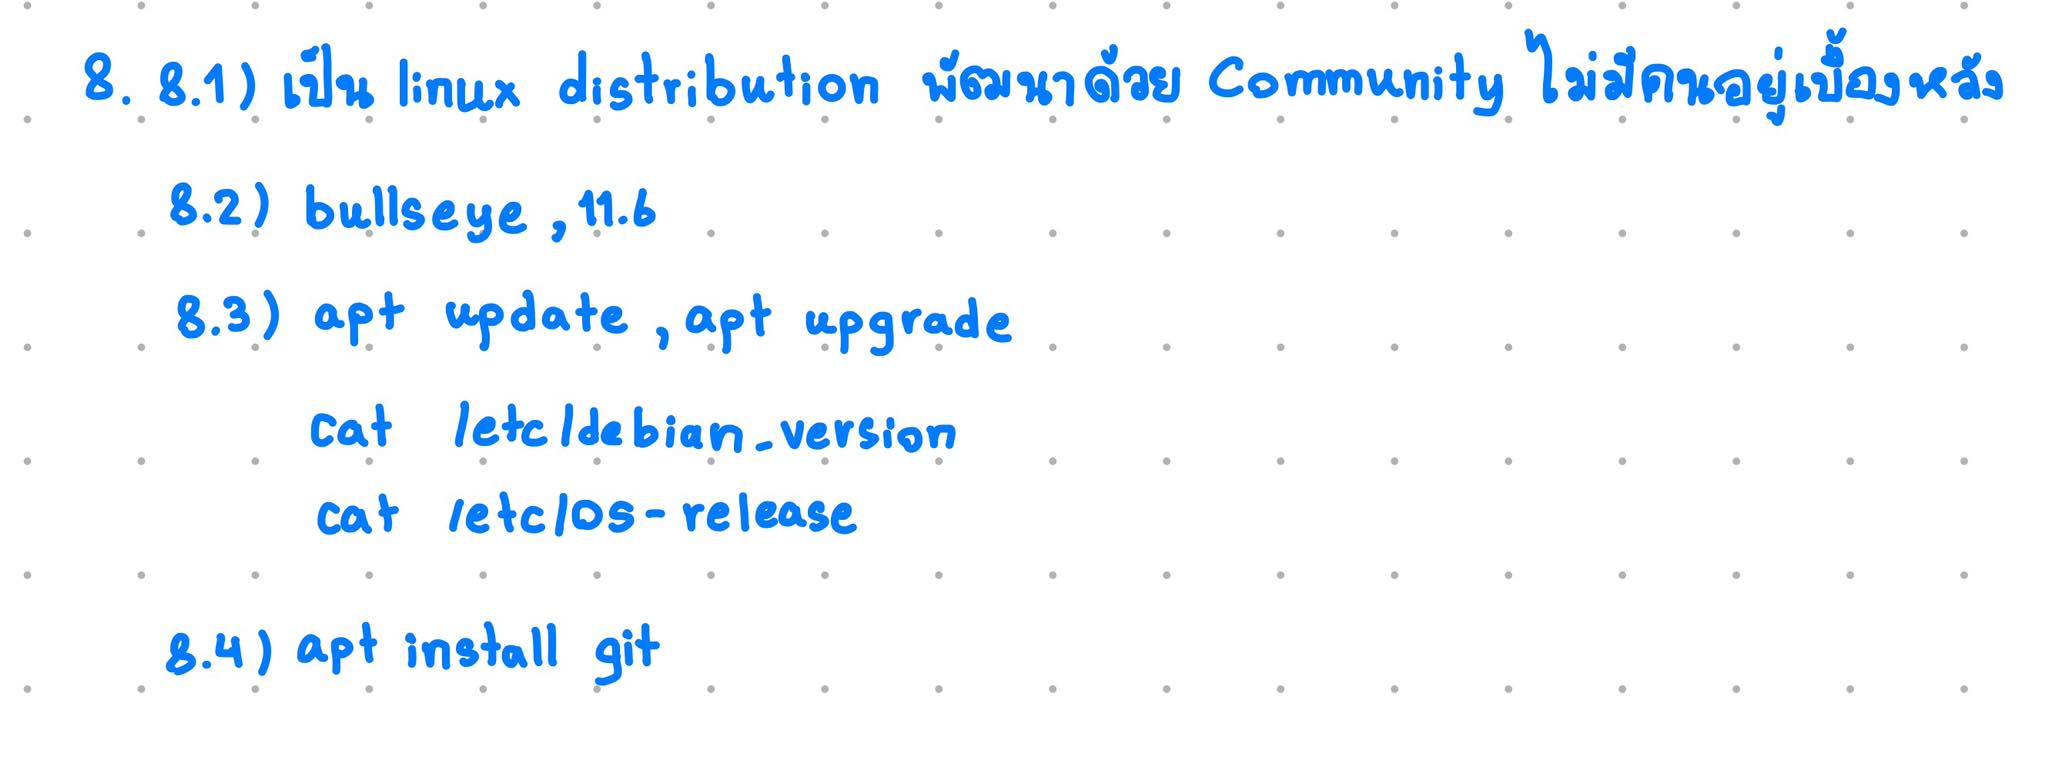 8. 8.1) เป็น linux distribution พัฒนาด้วย Community ไม่มีคนอยู่เบื้องหลัง
8.2) bullseye , 11.6
8.3) apt update , apt upgrade
cat /etc/debian_version
cat /etc/os-release
8.4) apt install git